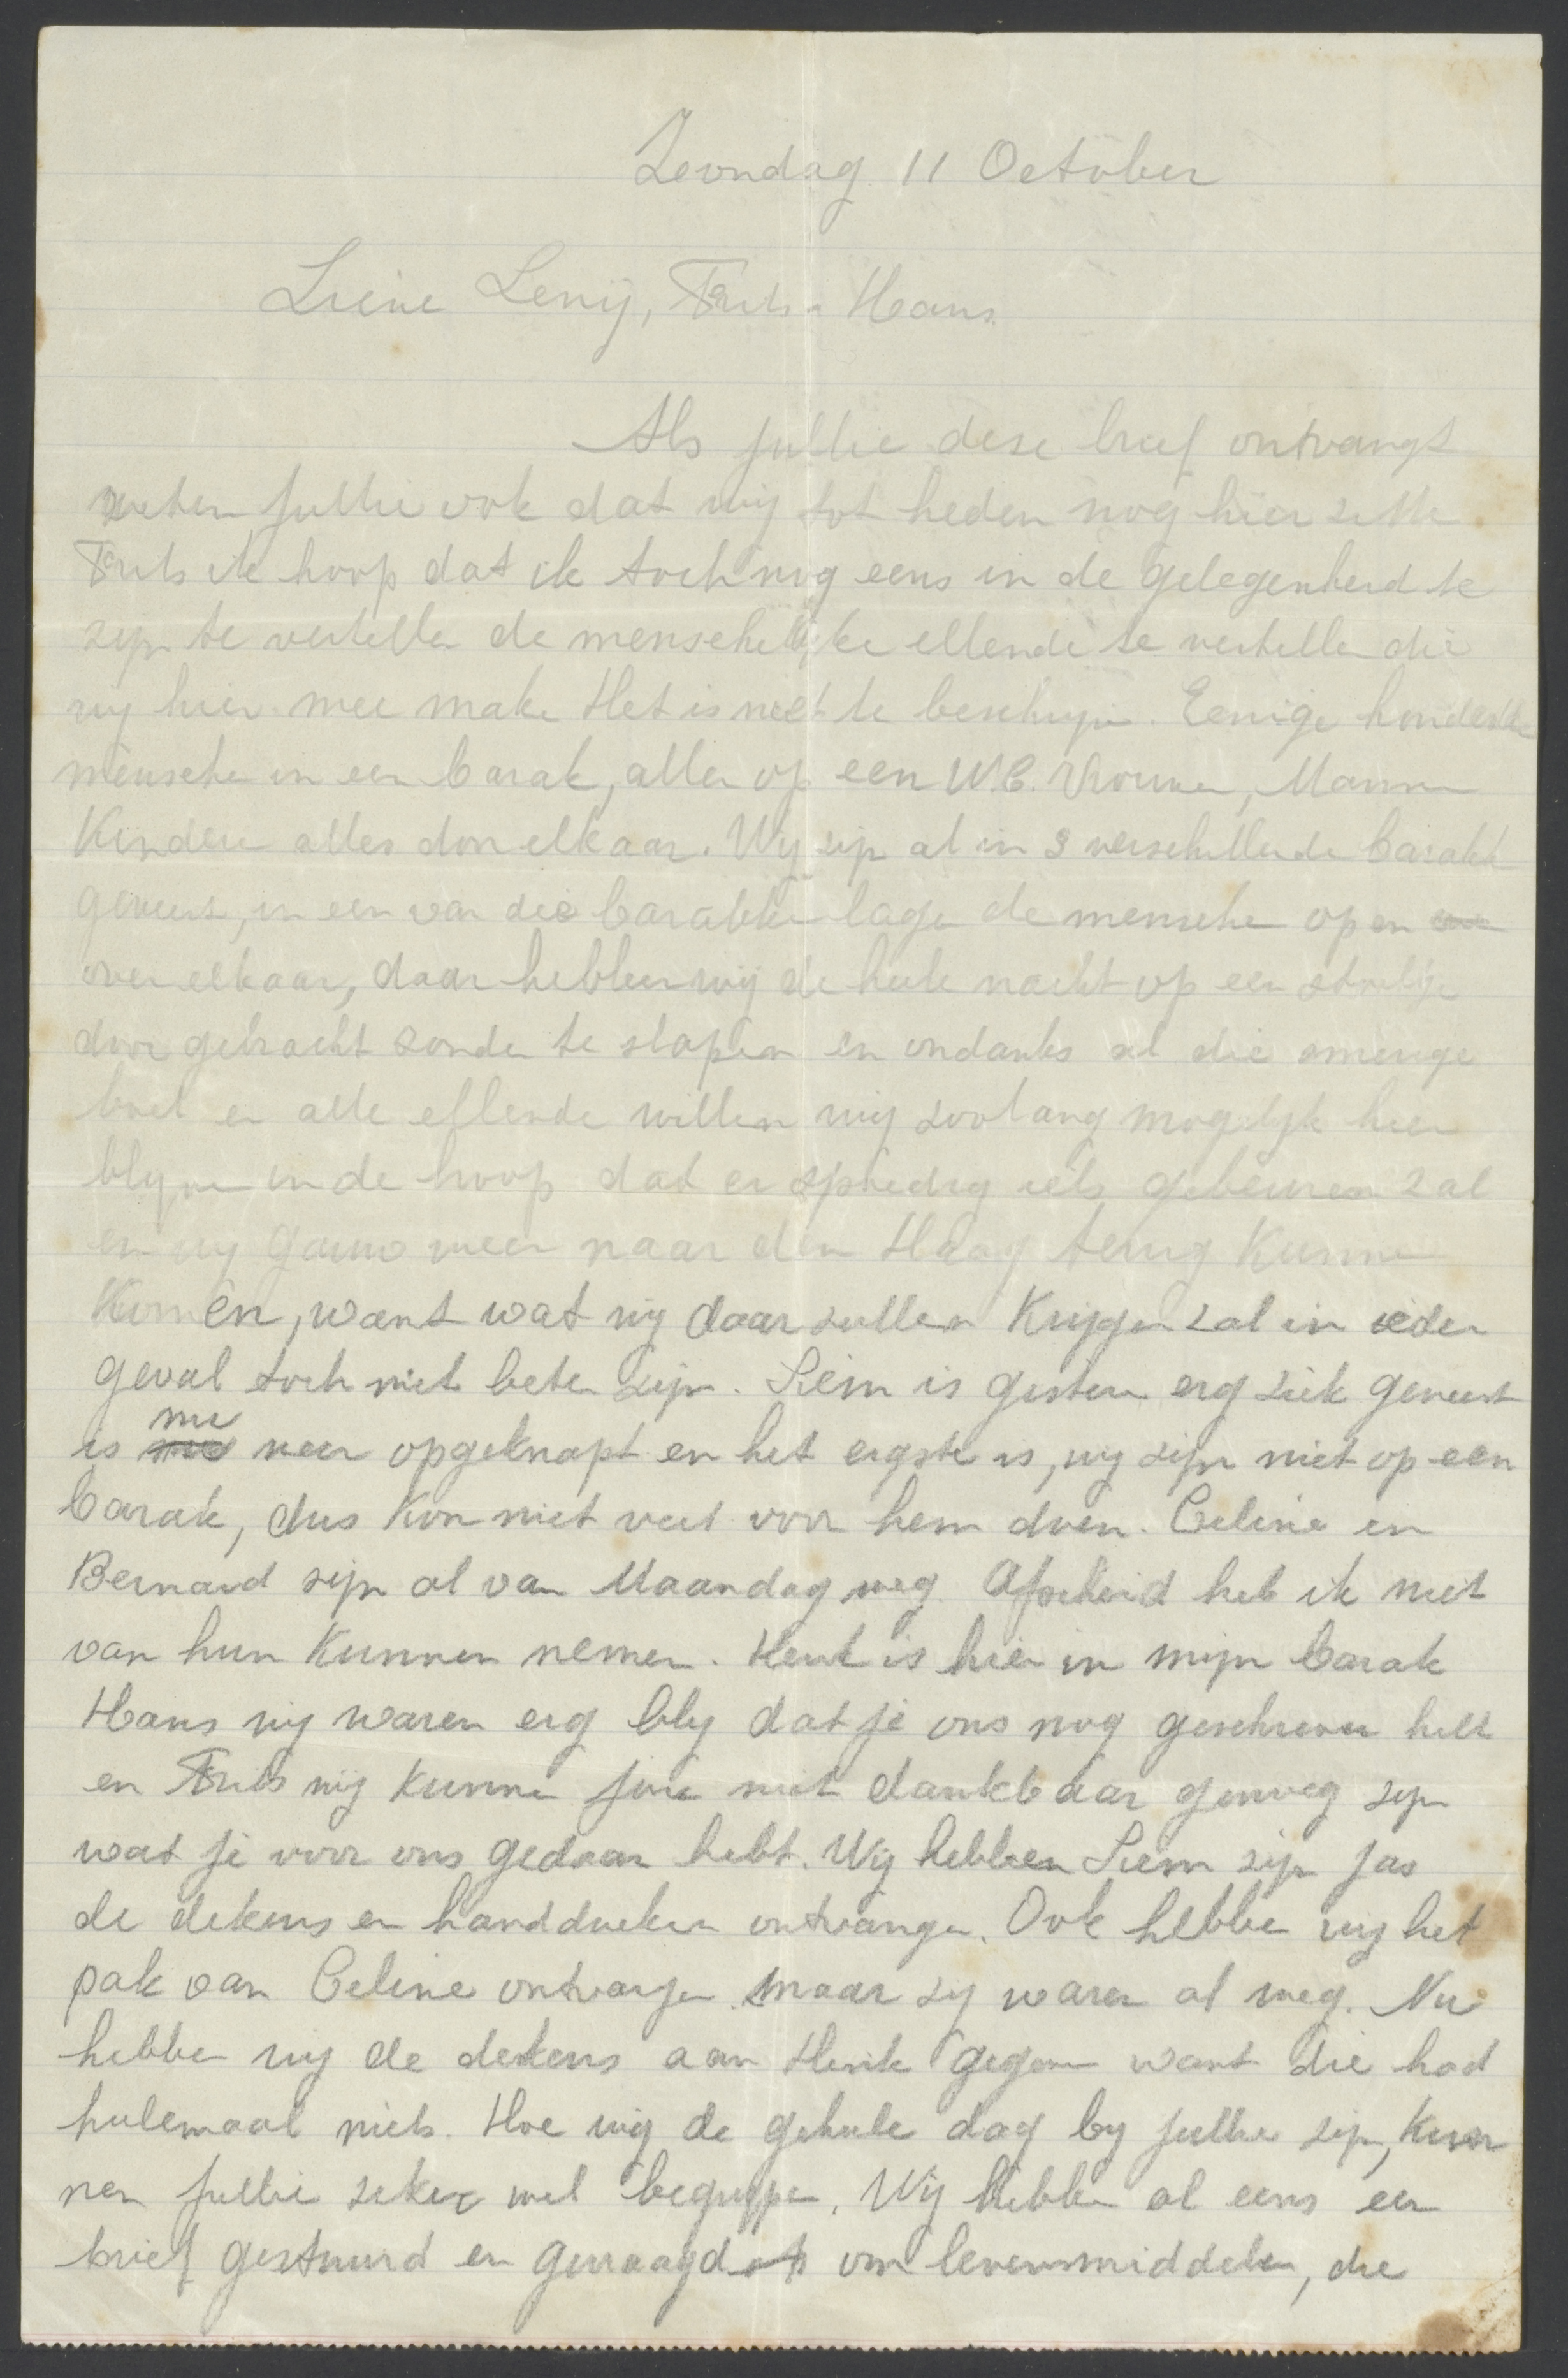 Zoondag 11 October
Lieve Lenij, Frits & Hans.
Als jullie dese brief ontvangt
weten jullie ook dat wij tot heden nog hier zitte.
Frits ik hoop dat ik toch nog eens in de gelegenheid te
zijn te vertelle de menschelijke ellende te vertelle die
wij hier mee make Het is niet te beschrijve. Eenige honderde
mensche in een barak, alle op een W.C. Vrouwe, Manne
Kindere alles door elkaar. Wij zijn al in 3 verschillende barakke
geweest, in een van die barakke lage de mensche op en
over elkaar, daar hebben wij de heele nacht op een stoeltje
door gebracht zonder te slapen en ondanks al die smerige
boel en alle ellende willen wij zoolang mogelijk hier
blijven in de hoop dat er spoedig iets gebeuren zal
en wij gauw weer naar den Haag terug kunne
komen, want wat wij daar zullen krijgen zal in ieder
geval toch niet beter zijn. Siem is gistere erg ziek geweest
is nu weer opgeknapt en het ergste is, wij zijn niet op een
barak, dus kon niet veel voor hem doen. Celine en
Bernard zijn al van Maandag weg. Afscheid heb ik niet
van hun kunnen nemen. Henk is hier in mijn barak
Hans wij waren erg blij dat je ons nog geschreven hebt
en Frits wij kunne jou niet dankbaar genoeg zijn
wat je voor ons gedaan hebt. Wij hebben Siem zijn jas
de dekens en handdoeken ontvange. Ook hebbe wij het
pak van Celine ontvange maar zij waren al weg. Nu
hebbe wij de dekens aan Henk gegeve want die had
heelemaal niets. Hoe wij de geheele dag bij jullie zijn, kun
nen jullie zeker wel begrijpe. Wij hebbe al eens een
brief gestuurd en gevraagd om levensmiddele, die